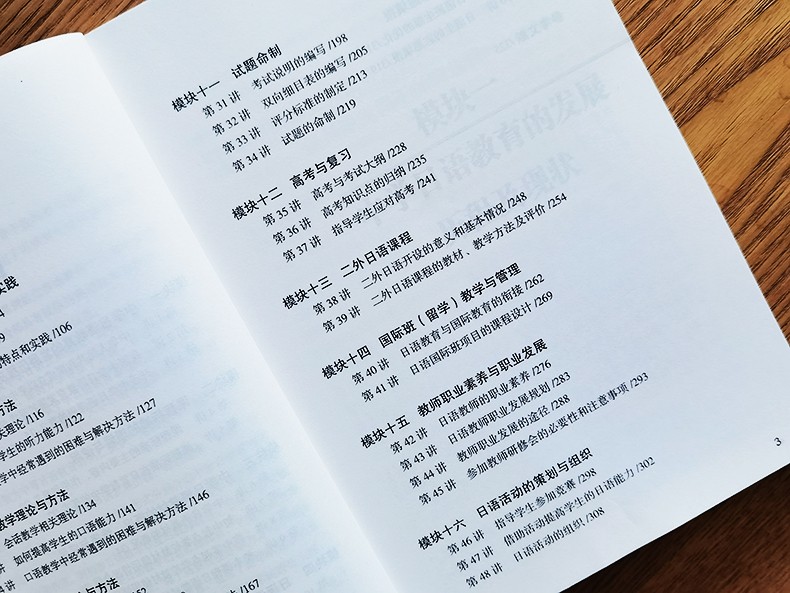 实践
的特点和实践 /106
方法
关理论 /116
学生的听力能力 /122
学中经常遇到的困难与解决方法 /127
教学理论与方法
会话教学相关理论 /134
讲 如何提高学生的口语能力 /141
讲 口语教学中经常遇到的困难与解决方法 /146
与方法
/167
模块十一 试题命制
第 31 讲 考试说明的编写 /198
第 32 讲 双向细目表的编写 /205
第 33 讲 评分标准的制定 /213
第 34 讲 试题的命制 /219
模块十二 高考与复习
第 35 讲 高考与考试大纲 /228
第 36 讲 高考知识点的归纳 /235
第 37 讲 指导学生应对高考 /241
模块十三 二外日语课程
第 38 讲 二外日语开设的意义和基本情况 /248
第 39 讲 二外日语课程的教材、教学方法及评价 /254
模块十四 国际班（留学）教学与管理
第 40 讲 日语教育与国际教育的衔接 /262
第 41 讲 日语国际班项目的课程设计 /269
模块十五 教师职业素养与职业发展
第 42 讲 日语教师的职业素养 /276
第 43 讲 日语教师职业发展规划 /283
第 44 讲 教师职业发展的途径 /288
第 45 讲 参加教师研修会的必要性和注意事项 /293
模块十六 日语活动的策划与组织
第 46 讲 指导学生参加竞赛 /298
第 47 讲 借助活动提高学生的日语能力 /302
第 48 讲 日语活动的组织 /308
3